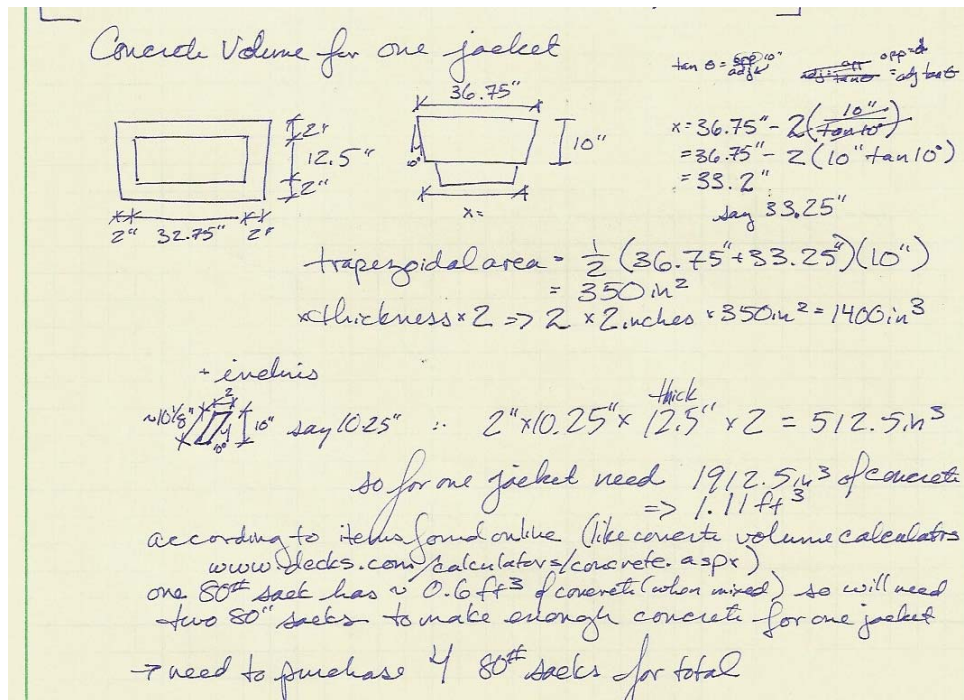 Concrete Volume for one jacket
tan θ = opp 10" / adj x
opp = d
= adj tan θ
36.75"
2"
12.5"
2"
2" 32.75" 2"
10"
10°
x =
x = 36.75" - 2(10" / tan 10°)
= 36.75" - 2(10" tan 10°)
= 33.2"
say 33.25"
trapezoidal area = 1/2 (36.75" + 33.25")(10")
= 350 in²
x thickness x 2 => 2 x 2 inches x 350 in² = 1400 in³
+ end
2
~10 1/8" 10" say 10.25" ∴ 2" x 10.25" x 12.5" thick x 2 = 512.5 in³
10°
so for one jacket need 1912.5 in³ of concrete
=> 1.11 ft³
according to items found online (like concrete volume calculators
www.decks.com/calculators/concrete.aspx)
one 80# sack has ~ 0.6 ft³ of concrete (when mixed) so will need
two 80# sacks to make enough concrete for one jacket
→ need to purchase 4 80# sacks for total